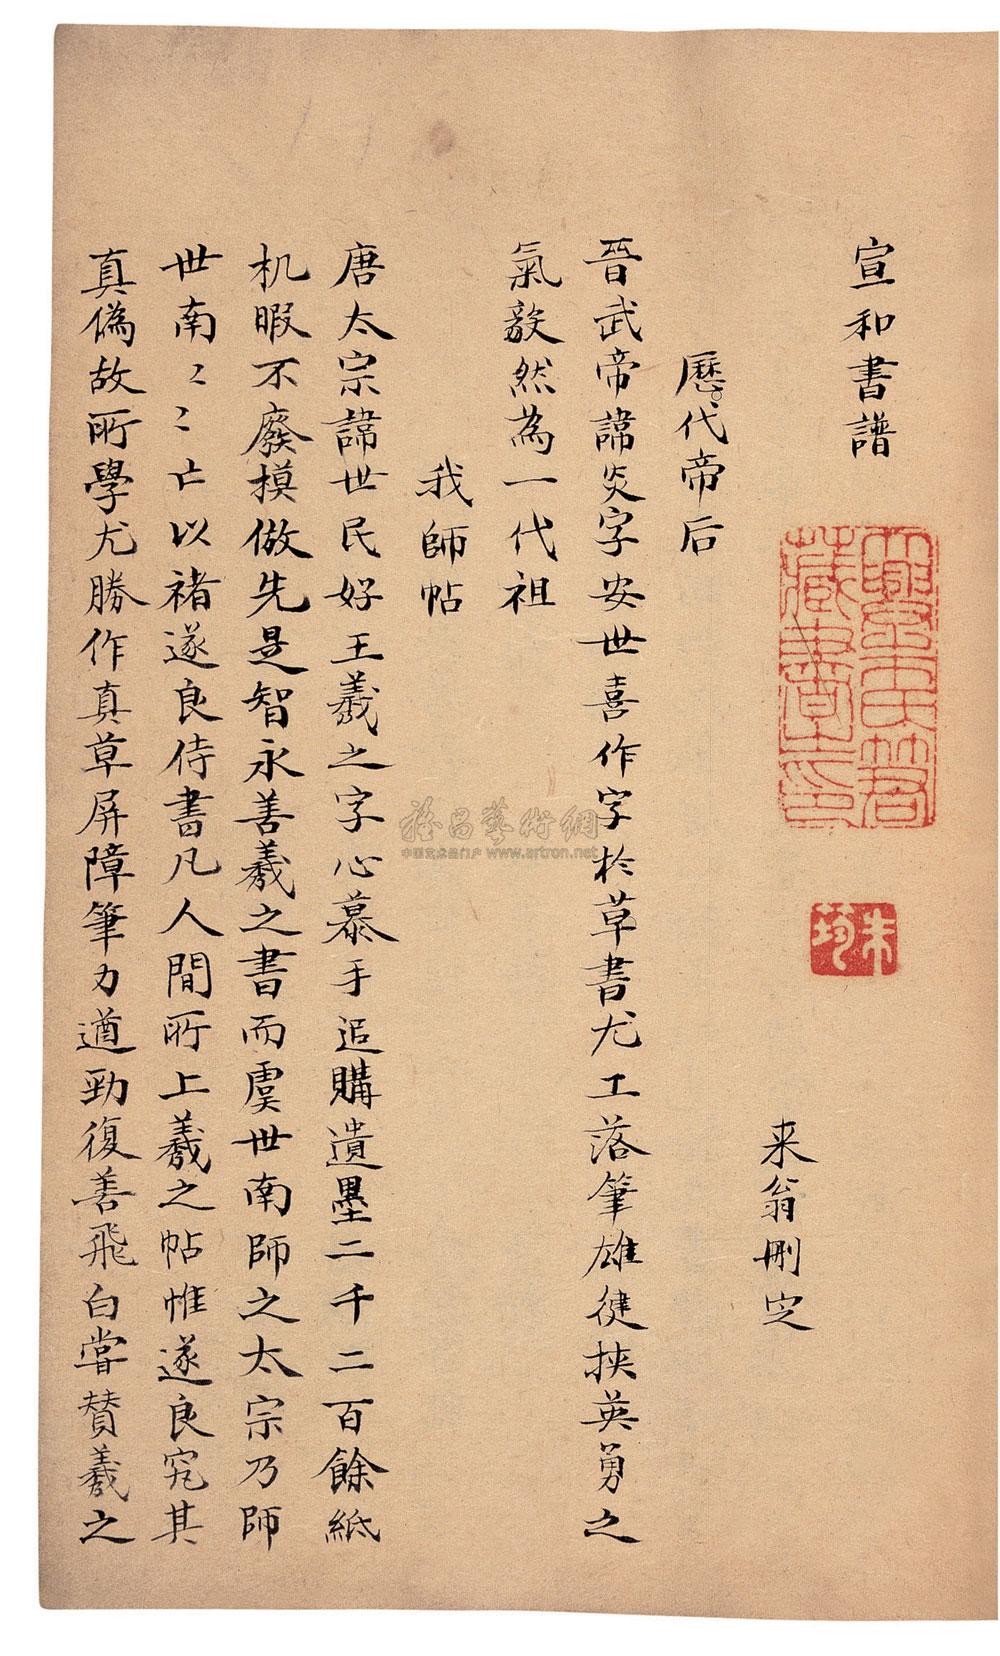 宣和書譜
来翁刪定
歷代帝后
晉武帝諱炎字安世喜作字於草書尤工落筆雄健挾英勇之
氣毅然為一代祖
我師帖
唐太宗諱世民好王羲之字心慕手追購遺墨二千二百餘紙
机暇不廢模倣先是智永善羲之書而虞世南師之太宗乃師
世南〻〻亡以褚遂良侍書凡人間所上羲之帖惟遂良究其
真偽故所學尤勝作真草屏障筆力遒勁復善飛白嘗贊羲之
朱筠
雅昌藝術網
中国艺术品门户 www.artron.net